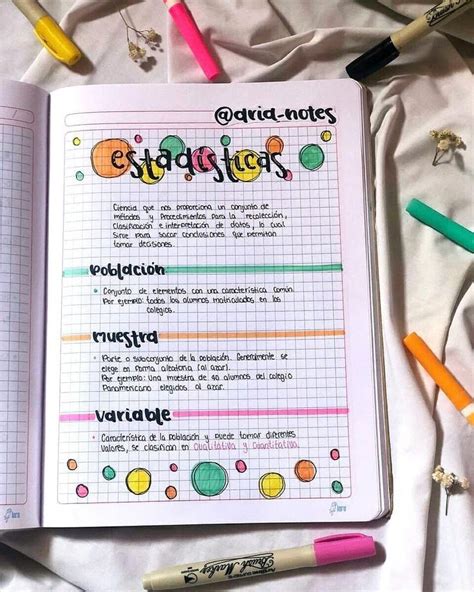 @aria-notes
estadísticas
Ciencia que nos proporciona un conjunto de
métodos y Procedimientos para la recolección,
Clasificación e interpretación de datos, lo cual
Sirve para sacar conclusiones que permitan
tomar decisiones.
Población
• Conjunto de elementos con una característica común.
Por ejemplo: todos los alumnos matriculados en los
colegios.
muestra
• Parte o subconjunto de la población. Generalmente se
elege en forma aleatoria (al azar).
Por ejemplo: Una muestra de 40 alumnos del colegio
Panamericano elegidos al azar.
Variable
• Característica de la población y puede tomar diferentes
valores, se clasifican en Cualitativa y Cuantitativa.
Brush Marker